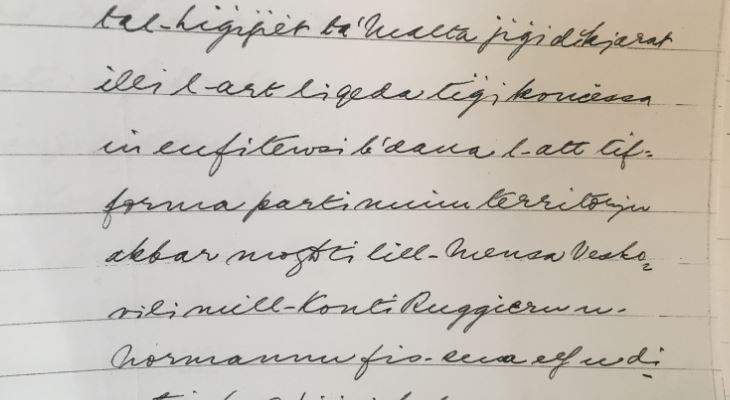 tal-Liġijiet ta' Malta jiġi dikjarat
illi l-art li qeda tiġi konċessa
in enfitewsi b'dana l-att tif-
forma parti minn territorju
akbar mogħti lill-Mensa Vesko-
vili mill-Konti Ruggieru n-
Normannu fis-sena elf u di